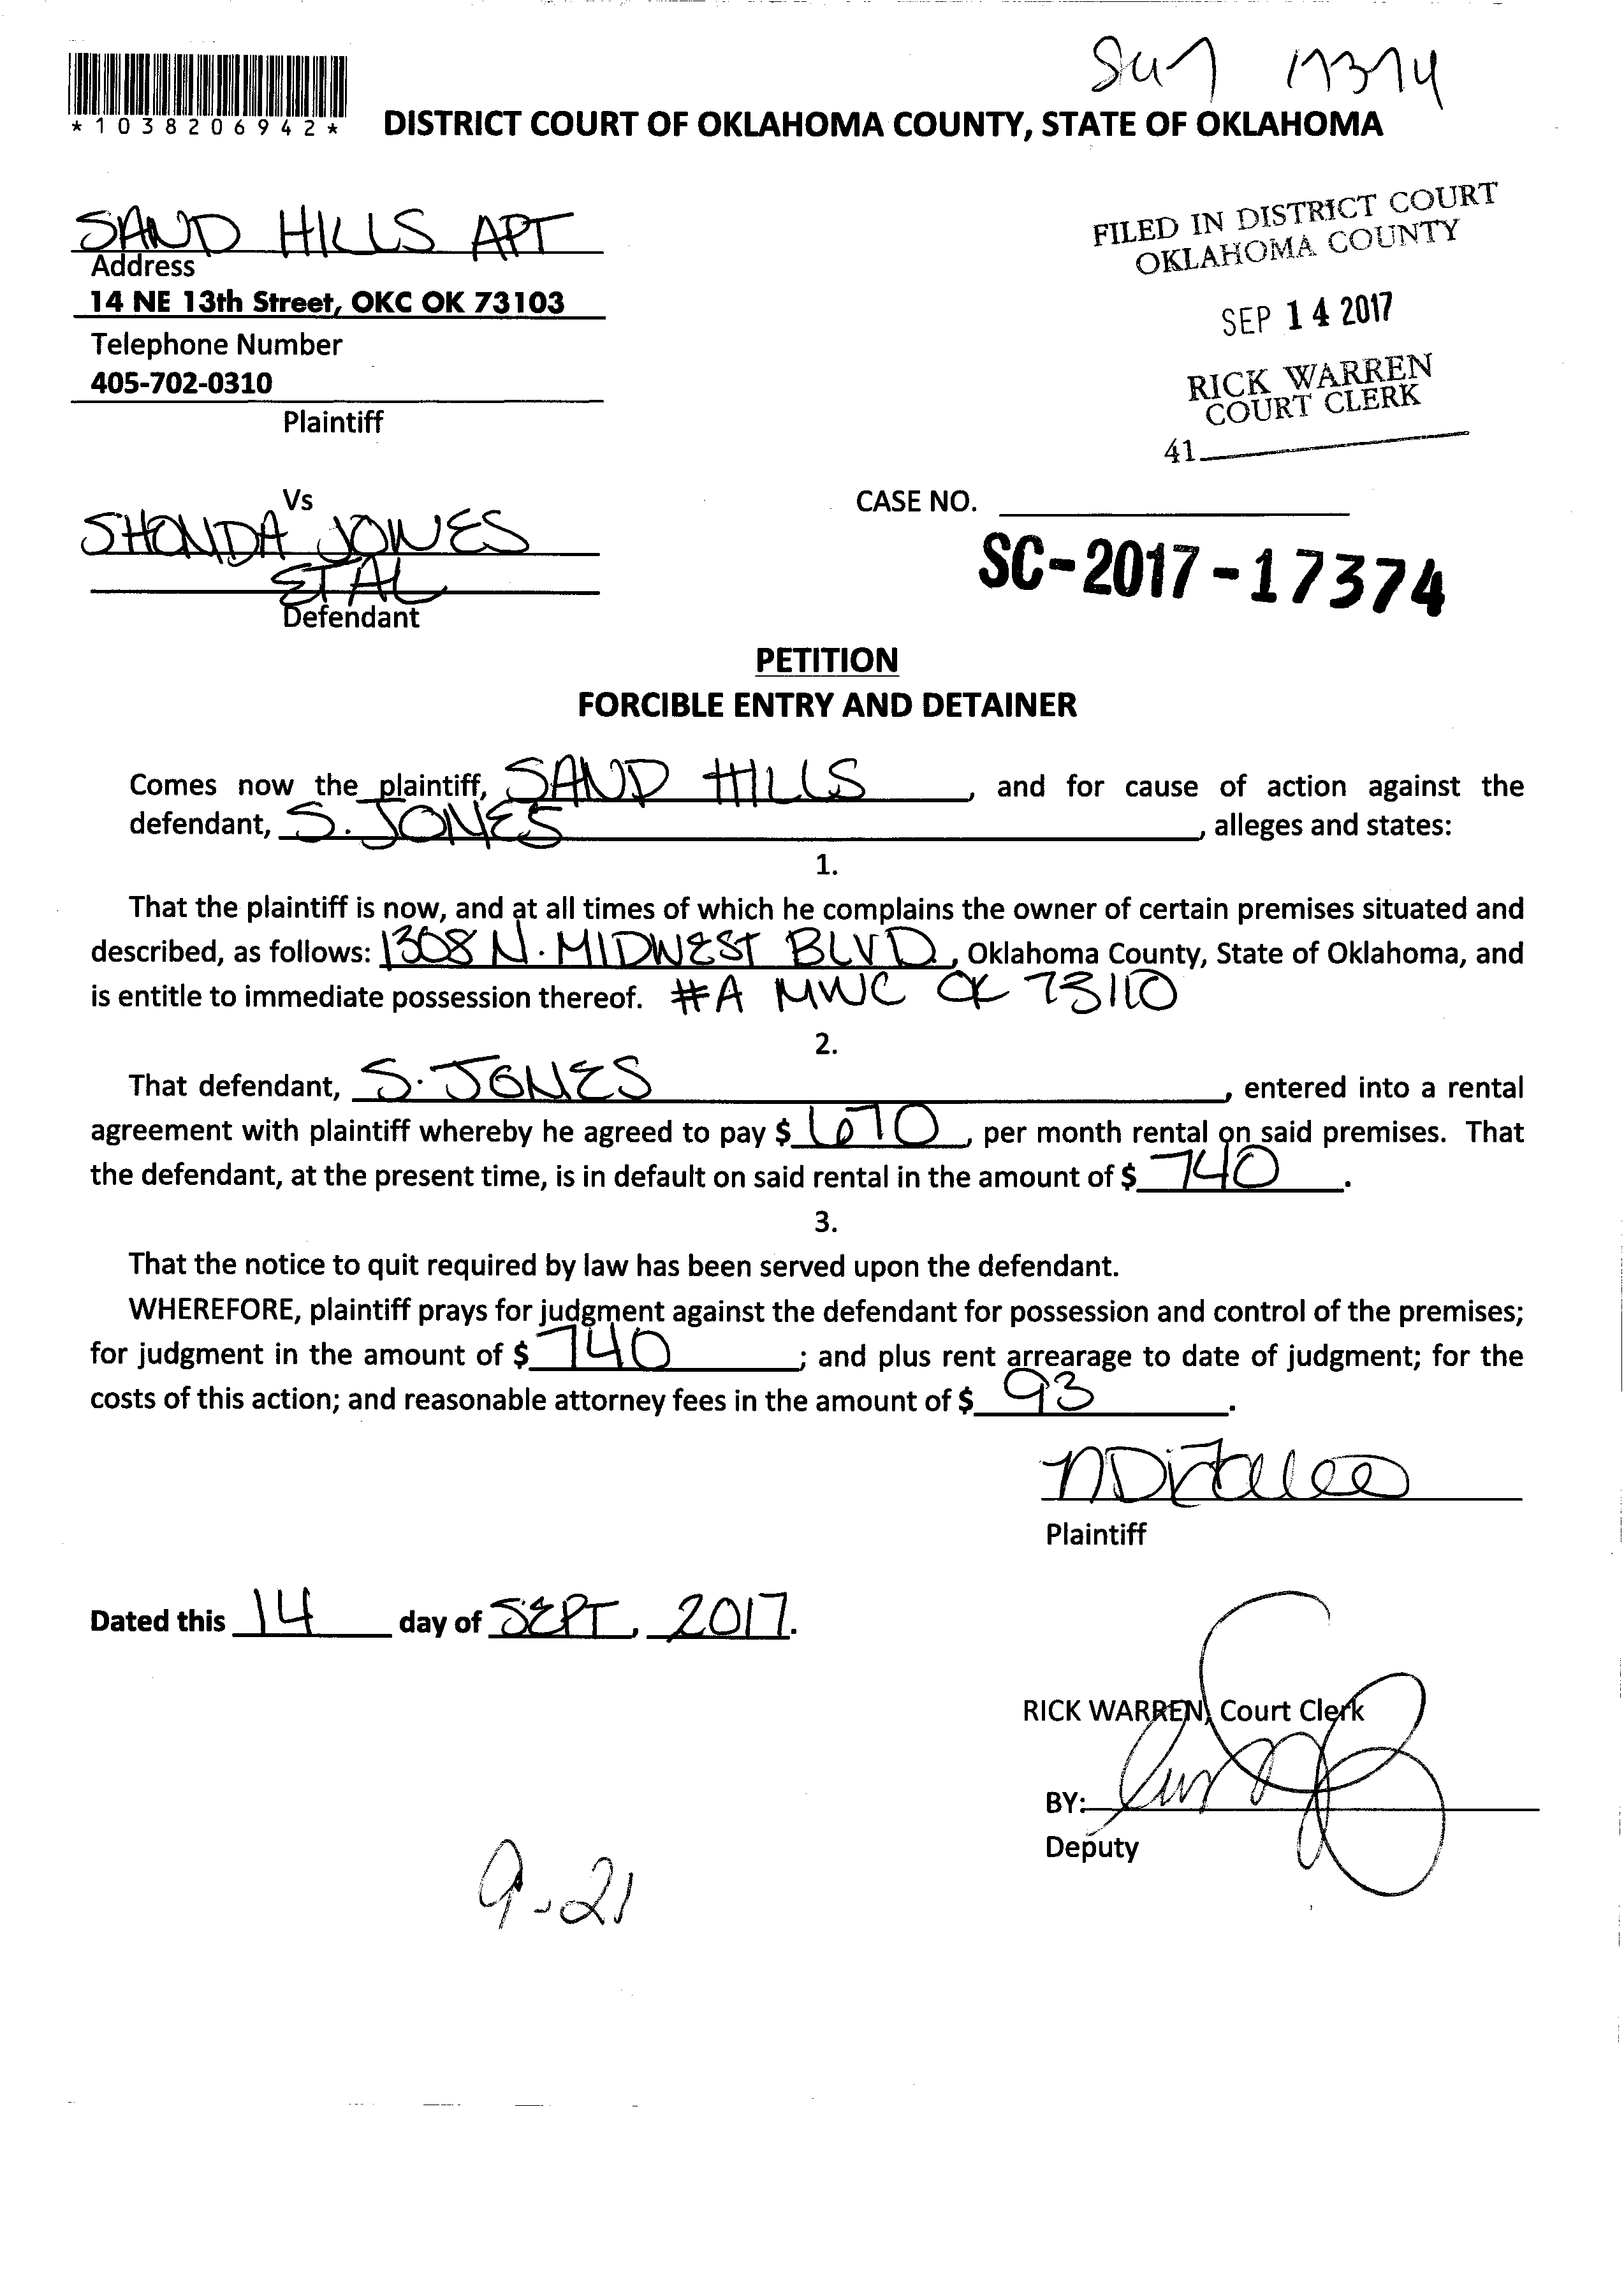 17374
*1038206942*
DISTRICT COURT OF OKLAHOMA COUNTY, STATE OF OKLAHOMA
SAND HILLS APT
Address
14 NE 13th Street, OKC OK 73103
Telephone Number
405-702-0310
Plaintiff
FILED IN DISTRICT COURT
OKLAHOMA COUNTY
SEP 14 2017
RICK WARREN
COURT CLERK
41
Vs
SHONDA JONES
ETAL
Defendant
CASE NO.
SC-2017-17374
PETITION
FORCIBLE ENTRY AND DETAINER
Comes now the plaintiff, SAND HILLS, and for cause of action against the
defendant, S. JONES, alleges and states:
1.
That the plaintiff is now, and at all times of which he complains the owner of certain premises situated and
described, as follows: 1308 N. MIDWEST BLVD, Oklahoma County, State of Oklahoma, and
is entitle to immediate possession thereof. #A MWC OK 73110
2.
That defendant, S. JONES, entered into a rental
agreement with plaintiff whereby he agreed to pay $ 670, per month rental on said premises. That
the defendant, at the present time, is in default on said rental in the amount of $ 740.
3.
That the notice to quit required by law has been served upon the defendant.
WHEREFORE, plaintiff prays for judgment against the defendant for possession and control of the premises;
for judgment in the amount of $ 740; and plus rent arrearage to date of judgment; for the
costs of this action; and reasonable attorney fees in the amount of $ 93.
Plaintiff
Dated this 14 day of SEPT, 2017.
RICK WARREN, Court Clerk
BY:
Deputy
9-21